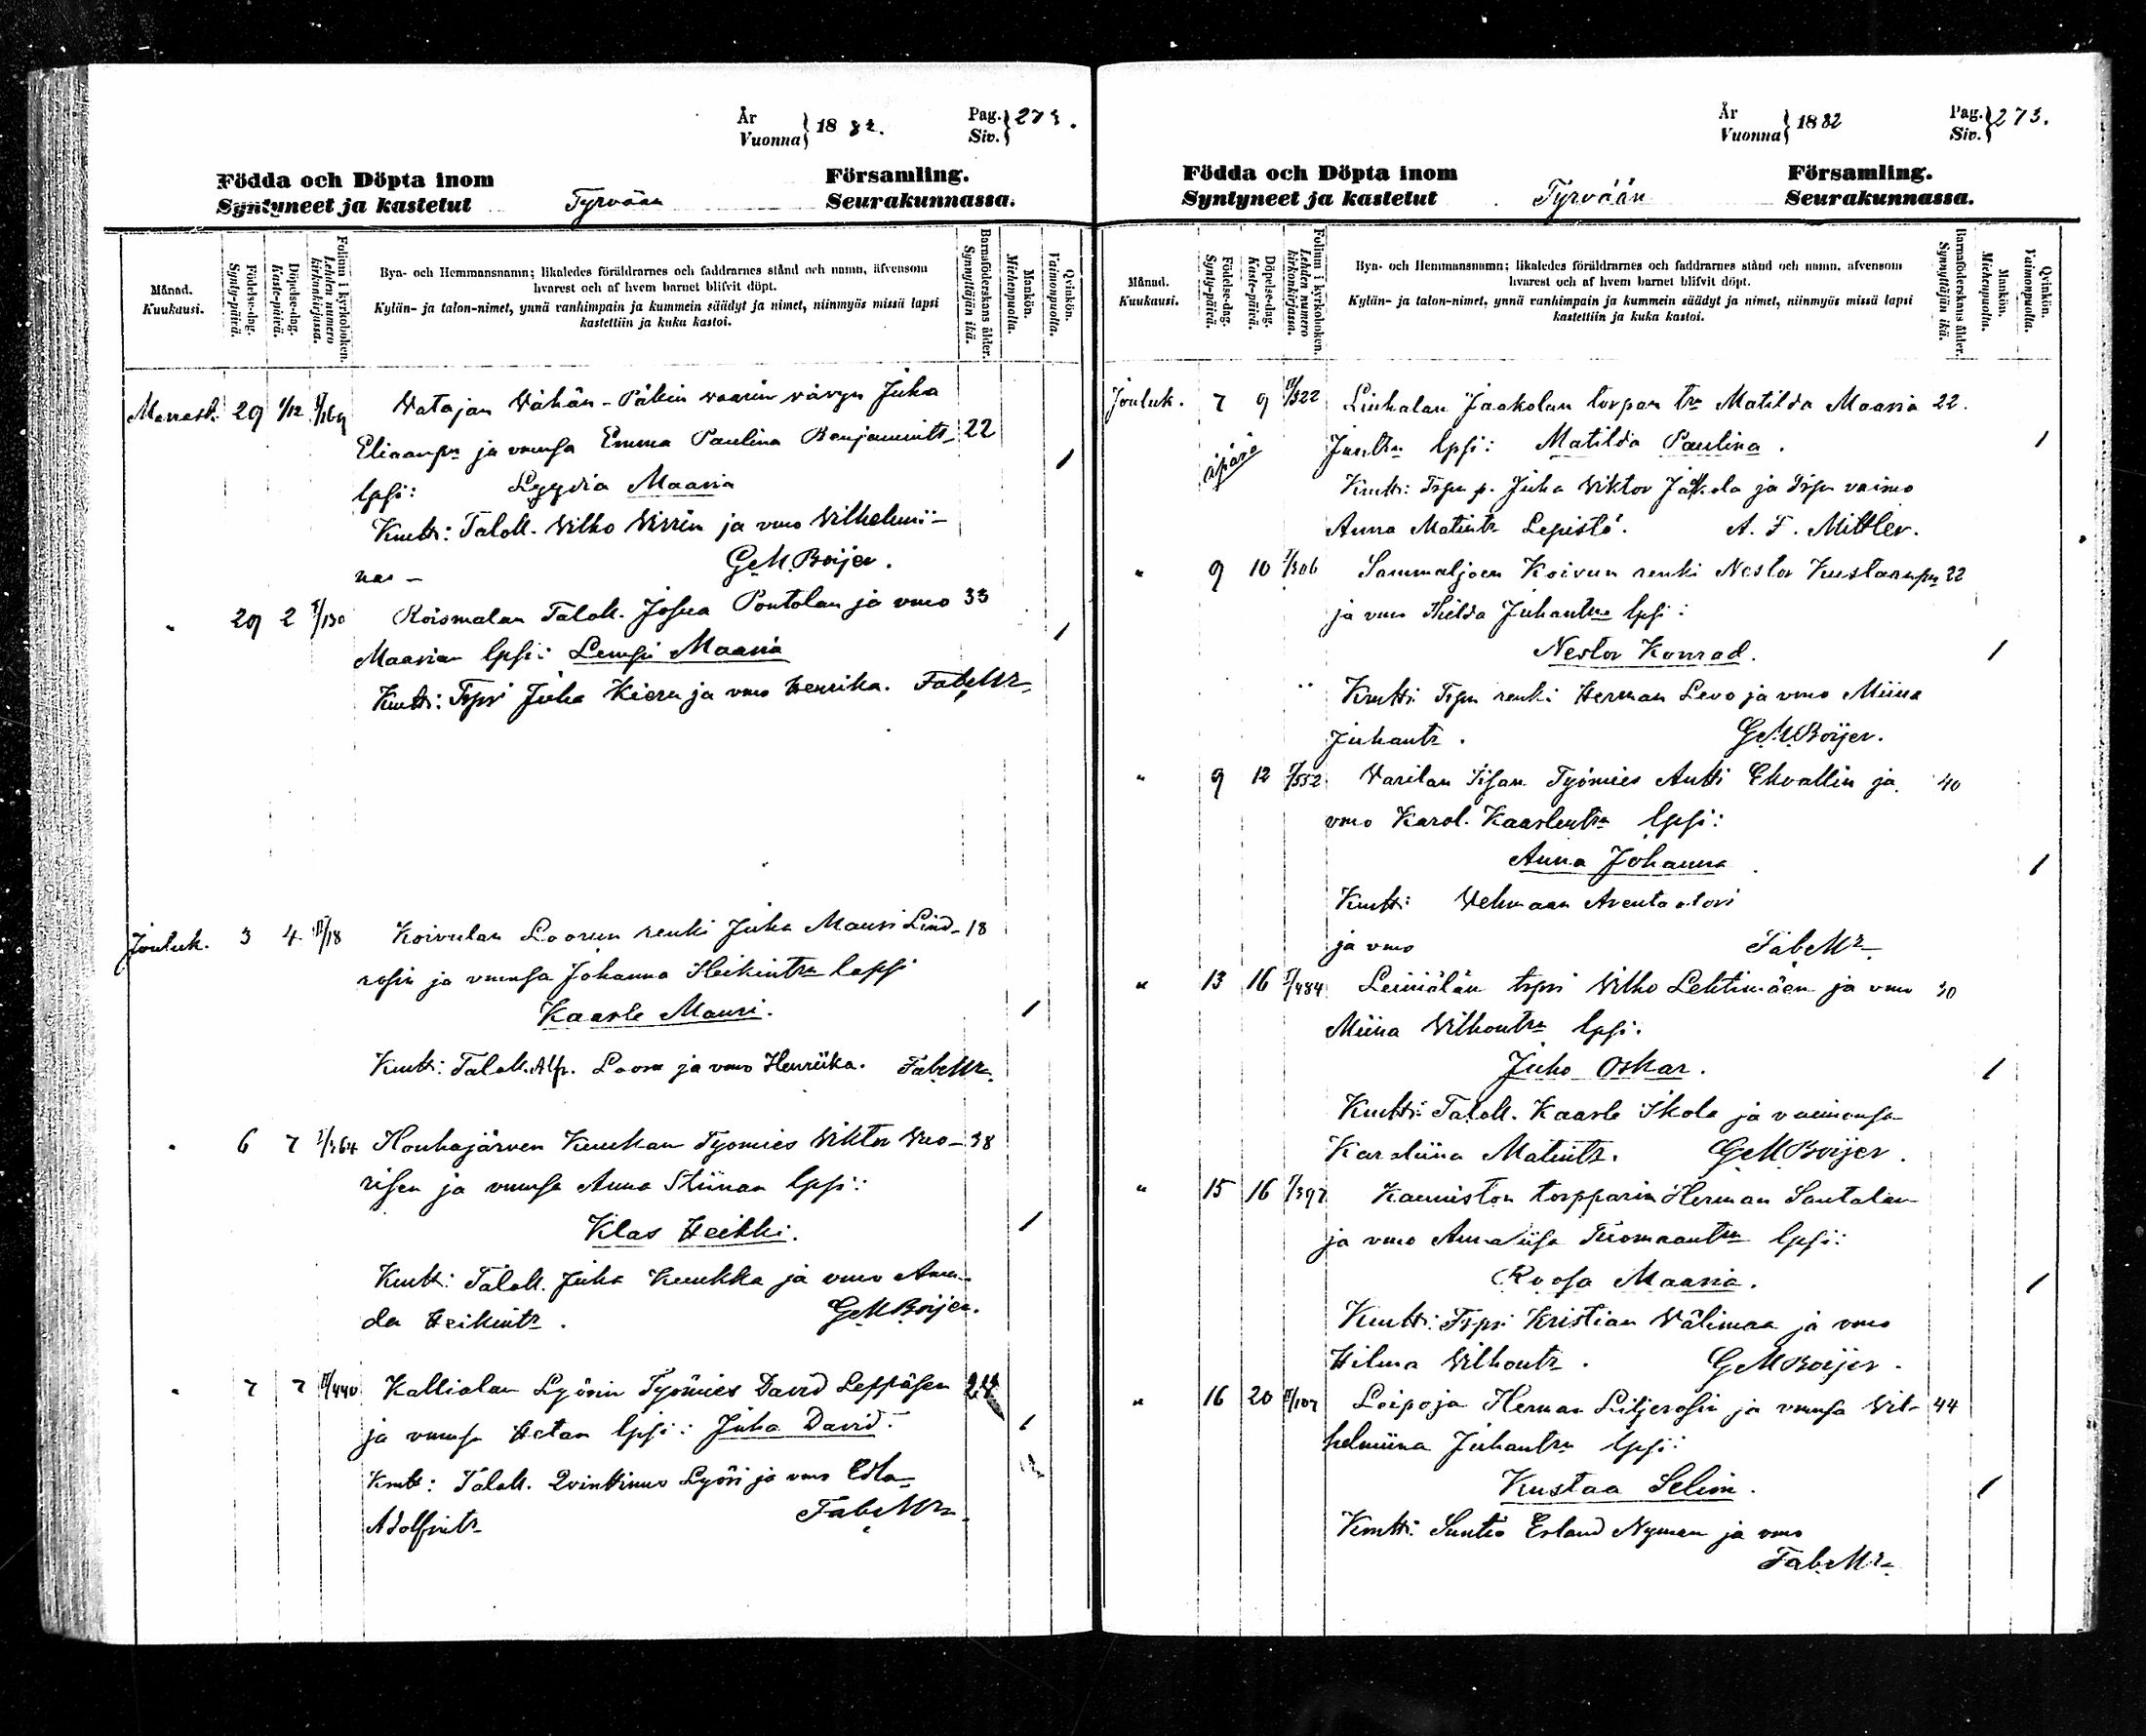 År
Vuonna } 1882.
Pag.
Siv. } 273.
Födda och Döpta inom
Församling.
Syntyneet ja kastetut Tyrvään Seurakunnassa.
Månad.
Kuukausi.
Födelse-dag.
Synty-päivä.
Döpelse-dag.
Kaste-päivä.
Folium i kyrkoboken.
Lehden numero kirkonkirjassa.
Bya- och Hemmansnamn; likaledes föräldrarnes och faddrarnes stånd och namn, äfvensom
hvarest och af hvem barnet blifvit döpt.
Kylän- ja talon-nimet, ynnä vanhimpain ja kummein säädyt ja nimet, niinmyös missä lapsi
kastettiin ja kuka kastoi.
Barnaföderskans ålder.
Synnyttäjän ikä.
Mankön.
Miehenpuolta.
Qvinkön.
Vaimonpuolta.
Marrask. 29 1/12 Watajan Wähän-Päkin vaarin vävyn Juha
Eliaanpn ja vmnsa Emma Paulina Benjamintr 22
lpsi: Lyydia Maaria 1
Kmtt: Taloll. Wilho Wirrin ja vmo Vilhelmii-
nas – G.M.Boijer.
" 29 2 I/130 Roismalan Taloll. Josua Pontolan ja vmo 33
Maarian lpsi: Lempi Maaria 1
Kmtt: Trpri Juha Kieru ja vmo Henrika. FabeMr
Jouluk. 3 4 II/18 Koivulan Loorun renki Juha Mauri Lind- 18
rosin ja vmnsa Johanna Heikintrn lapsi
Kaarle Mauri. 1
Kmtt: Taloll. Alfr. Looru ja vmo Henriika. FabeMr.
" 6 7 I/364 Houhajärven Kuukan Työmies Viktor Wuo- 38
risen ja vmnsa Anna Stiinan lpsi:
Klas Heikki. 1
Kmtt: Taloll. Juha Kuukka ja vmo Aman-
da Heikintr. G.M.Boijer.
" 7 7 II/440 Kallialan Lyörin Työmies David Leppäsen
ja vmnsa Hetan lpsi: Juha David. 1
Kmtt: Taloll. Qvinttinus Lyöri ja vmo Edla
Adolfintr FabeMr.
År
Vuonna } 1882
Pag.
Siv. } 273.
Födda och Döpta inom
Församling.
Syntyneet ja kastetut Tyrvään Seurakunnassa.
Månad.
Kuukausi.
Födelse-dag.
Synty-päivä.
Döpelse-dag.
Kaste-päivä.
Folium i kyrkoboken.
Lehden numero kirkonkirjassa.
Bya- och Hemmansnamn; likaledes föräldrarnes och faddrarnes stånd och namn, äfvensom
hvarest och af hvem barnet blifvit döpt.
Kylän- ja talon-nimet, ynnä vanhimpain ja kummein säädyt ja nimet, niinmyös missä lapsi
kastettiin ja kuka kastoi.
Barnaföderskans ålder.
Synnyttäjän ikä.
Mankön.
Miehenpuolta.
Qvinkön.
Vaimonpuolta.
Jouluk. 7 9 II/322 Liuhalan Jaakolan torpan Matilda Maaria 22.
äpärä lpsi: Matilda Paulina. 1
Kmtt: Trpn p. Juha Viktor Jaakola ja Trpn vaimo
Anna Matintr Lepistö. A. F. Mittler.
" 9 10 I/306 Sammaljoen Koivun renki Nestor Kustaanpn 22
ja vmo Hilda Juhantrn lpsi:
Nestor Konrad. 1
Kmtti Trpn renki Herman Levo ja vmo Miina
Juhantr. G.M.Boijer.
" 9 12 I/552 Varilan Työmies Antti Ekvallin ja 40
vmo Karol. Kaarlentrn lpsi:
Anna Johanna 1
Kmtt: Vehmaan Arentaatori
ja vmo FabeMr
" 13 16 I/484 Leiniälän trpri Vilho Lehtimäen ja vmo 30
Miina Vilhontrn lpsi:
Juho Oskar. 1
Kmtti Taloll. Kaarle Ikola ja vaimonsa
Karoliina Matintr. G.M.Boijer.
" 15 16 I/397 Kaumiston torpparin Herman Santalan
ja vmo Annaliisa Tuomaantrn lpsi:
Roosa Maaria. 1
Kmtt: Trpri Kristian Välimaa ja vmo
Hilma Vilhontr. G.M.Boijer.
" 16 20 II/107 Loipoja Herman Liljerosin ja vmnsa Vil- 44
helmiina Juhantrn lpsi:
Kustaa Selim. 1
Kmtti Suntio Erland Nyman ja vmo
FabeMr.